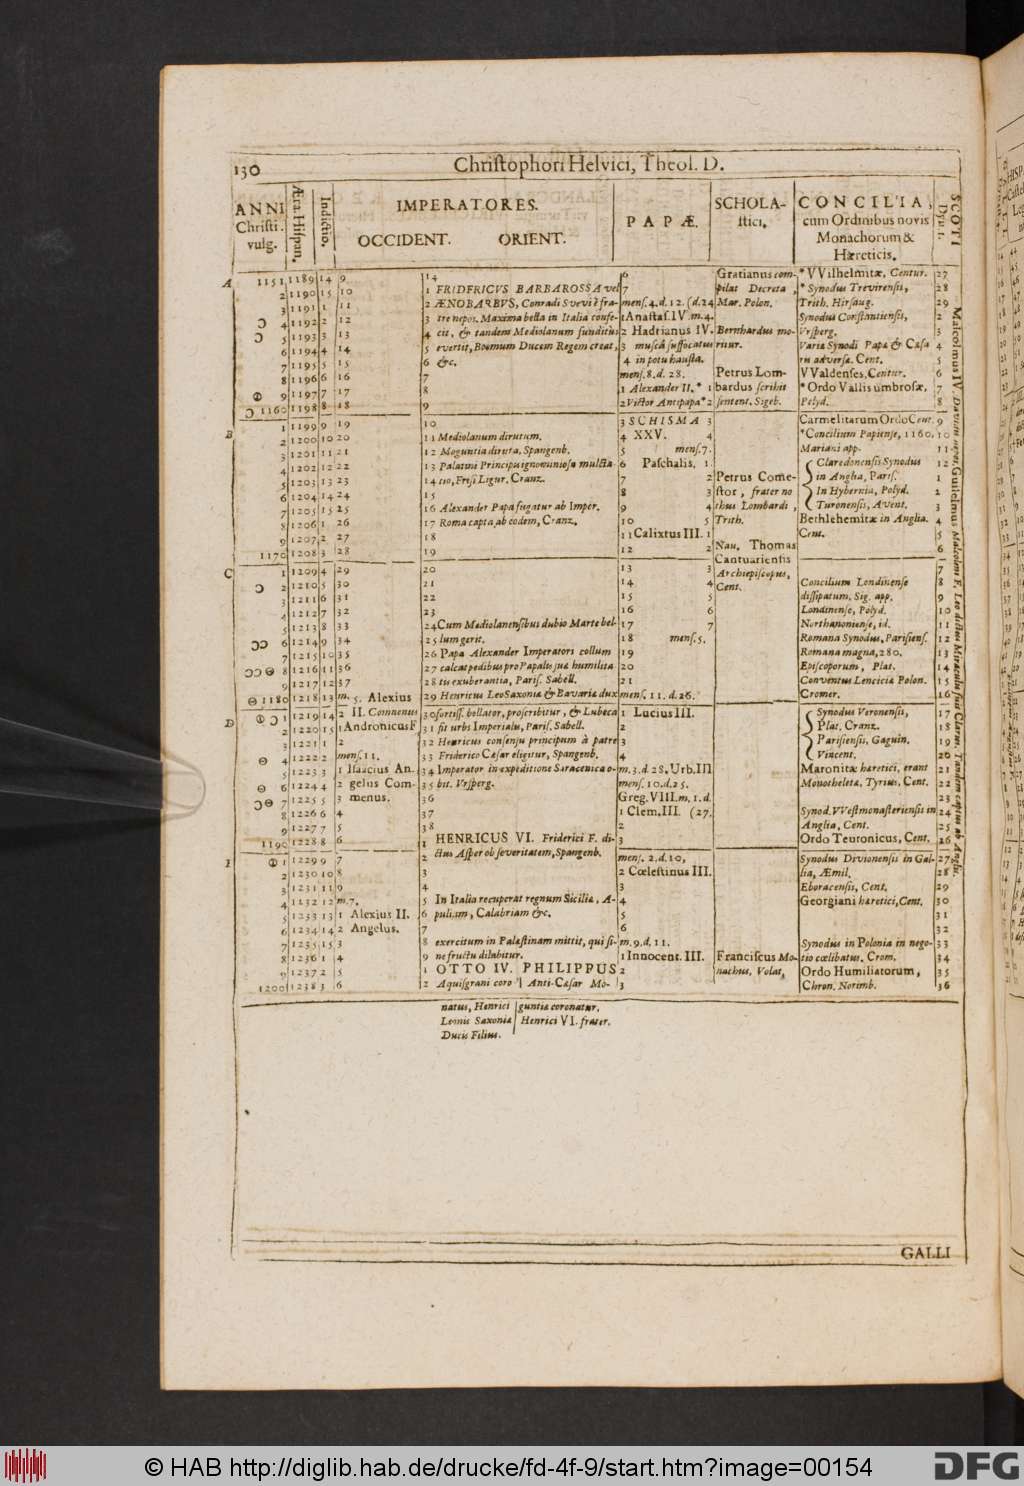 130 Christophori Helvici, Theol. D.
ANNI Christi. vulg.
Æra. Hispan.
Indictio.
IMPERATORES.
OCCIDENT. ORIENT.
PAPÆ.
SCHOLA-
stici.
CONCILIA,
cum Ordinibus novis
Monachorum &
Hæreticis.
SCOTI
A 1151 1189 14 9 14 6 Gratianus com- * VVilhelmitæ, Centur. 27
2 1190 15 10 1 FRIDERICVS BARBAROSSA vel 7 pilat Decreta, * Synodus Trevirensis, 28
3 1191 1 11 2 ÆNOBARBVS, Conradi Suevi è fra- mens. 4. d. 12. (d. 24 Mar. Polon. Trith. Hirsaug. 29
Ɔ 4 1192 2 12 3 tre nepos. Maxima bella in Italia confe- 1 Anastas. IV. m. 4. Synodus Constantiensis, 2
Ɔ 5 1193 3 13 4 cit, & tandem Mediolanum funditùs 2 Hadrianus IV. Bernhardus mo- Vrsperg. 3
6 1194 4 14 5 evertit, Boemum Ducem Regem creat, 3 muscâ suffocatus ritur. Variæ Synodi Papæ & Cæsa 4
7 1195 5 15 6 &c. 4 in potu haustâ. ris adversæ. Cent. 5
8 1196 6 16 7 mens. 8. d. 28. Petrus Lom- VValdenses, Centur. 6
9 1197 7 17 8 1 Alexander II. * 1 bardus scribit * Ordo Vallis umbrosæ, 7
Ɔ 1160 1198 8 18 9 2 Victor Antipapa * 2 sentent. Sigeb. Polyd. 8
B 1 1199 9 19 10 3 SCHISMA 3 Carmelitarum Ordo Cent. 9
2 1200 10 20 11 Mediolanum dirutum. 4 XXV. 4 * Concilium Papiense, 1160. 10
3 1201 11 21 12 Moguntia diruta, Spangenb. 5 mens. 7. Mariani app. 11
4 1202 12 22 13 Palatini Principis ignominiosa mulcta- 6 Paschalis. 1 Claredonensis Synodus 12
5 1203 13 23 14 tio, Frisi Ligur. Cranz. 7 2 Petrus Come- in Anglia, Paris. 1
6 1204 14 24 15 8 3 stor, frater no in Hybernia, Polyd. 2
7 1205 15 25 16 Alexander Papa fugatur ab Imper. 9 4 thus Lombardi, Turonensis, Avent. 3
8 1206 1 26 17 Roma capta ab eodem, Cranz. 10 5 Trith. Bethlehemitæ in Anglia. 4
9 1207 2 27 18 11 Calixtus III. 1 Cent. 5
1170 1208 3 28 19 12 2 Nau. Thomas 6
C 1 1209 4 29 20 13 3 Cantuariensis 7
Ɔ 2 1210 5 30 21 14 4 Archiepiscopus, Concilium Londinense 8
3 1211 6 31 22 15 5 Cent. dissipatum, Sig. app. 9
4 1212 7 32 23 16 6 Londinense, Polyd. 10
5 1213 8 33 24 Cum Mediolanensibus dubio Marte bel- 17 7 Northanoniense, id. 11
ƆƆ 6 1214 9 34 25 lum gerit. 18 mens. 5. Romana Synodus, Parisiens. 12
7 1215 10 35 26 Papa Alexander Imperatoris collum 19 Romana magna, 280. 13
ƆƆ 8 1216 11 36 27 calcat pedibus pro Papali sua humilita 20 Episcoporum, Plat. 14
9 1217 12 37 28 tis exuberantia, Paris. Sabell. 21 Conventus Lenciciæ Polon. 15
1180 1218 13 m. 5. Alexius 29 Henricus Leo Saxoniæ & Bavariæ dux mens. 11. d. 26. Cromer. 16
D Ɔ 1 1219 14 2 II. Comnenus 30 fortiss. bellator, proscribitur, & Lubeca 1 Lucius III. Synodus Veronensis, 17
2 1220 15 1 Andronicus F 31 fit urbs Imperialis, Paris. Sabell. 2 Plat. Cranz. 18
3 1221 1 2 32 Henricus consensu principum à patre 3 Parisiensis, Gaguin. 19
4 1222 2 mens. 11. 33 Friderico Cæsar eligitur, Spangenb. 4 Vincent. 20
5 1223 3 1 Isaacius An- 34 Imperator in expeditione Saracenica o- m. 3. d. 28. Urb. III Maronitæ hæretici, erant 21
6 1224 4 2 gelus Com- 35 bit. Vrsperg. mens. 10. d. 25. Monotheletæ, Tyrius, Cent. 22
Ɔ 7 1225 5 3 menus. 36 Greg. VIII. m. 1. d. 23
8 1226 6 4 37 1 Clem. III. (27. Synod. VVestmonasteriensis in 24
9 1227 7 5 38 2 Anglia, Cent. 25
1190 1228 8 6 1 HENRICUS VI. Friderici F. di- 3 Ordo Teutonicus, Cent. 26
1 1229 9 7 2 ctus Asper ob severitatem, Spangenb. mens. 2. d. 10, Synodus Divionensis in Gal- 27
2 1230 10 8 3 2 Cœlestinus III. lia, Æmil. 28
3 1231 11 9 4 3 Eboracensis, Cent. 29
4 1232 12 m. 7. 5 In Italia recuperat regnum Siciliæ, A- 4 Georgiani hæretici, Cent. 30
5 1233 13 1 Alexius II. 6 puliam, Calabriam &c. 5 31
6 1234 14 2 Angelus. 7 6 32
7 1235 15 3 8 exercitum in Palæstinam mittit, qui si- m. 9. d. 11. Synodus in Polonia in nego- 33
8 1236 1 4 9 ne fructu dilabitur. 1 Innocent. III. Franciscus Mo- tio cœlibatus. Crom. 34
9 1237 2 5 1 OTTO IV. PHILIPPUS 2 nachus, Volat. Ordo Humiliatorum, 35
1200 1238 3 6 2 Aquisgrani coro Anti-Cæsar Mo- 3 Chron. Norimb. 36
natus, Henrici guntiæ coronatur,
Leonis Saxoniæ Henrici VI. frater.
Ducis Filius.
GALLI
© HAB http://diglib.hab.de/drucke/fd-4f-9/start.htm?image=00154
DFG